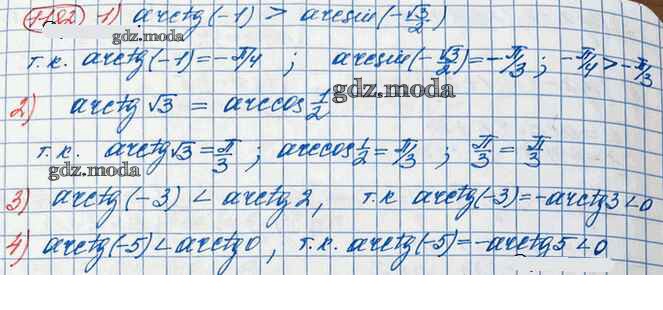 1182 1) arctg(-1) > arcsin(-√3/2)
gdz.moda
т.к. arctg(-1)=-π/4 ; arcsin(-√3/2)=-π/3 ; -π/4>-π/3
gdz.moda
2) arctg √3 = arccos 1/2
т.к. arctg√3=π/3 ; arccos 1/2=π/3 ; π/3=π/3
gdz.moda
3) arctg(-3) < arctg 2, т.к arctg(-3)=-arctg3<0
4) arctg(-5)<arctg0, т.к. arctg(-5)=-arctg5<0